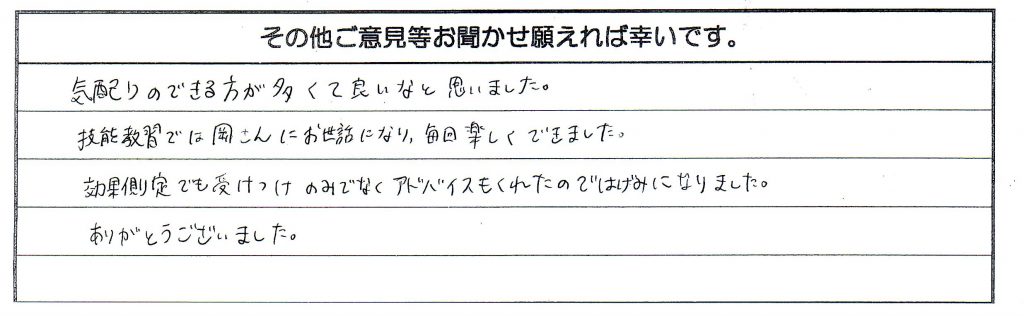 その他ご意見等お聞かせ願えれば幸いです。
気配りのできる方が多くて良いなと思いました。
技能教習では岡さんにお世話になり、毎回楽しくできました。
効果側定でも受けつけのみでなくアドバイスもくれたのではげみになりました。
ありがとうございました。